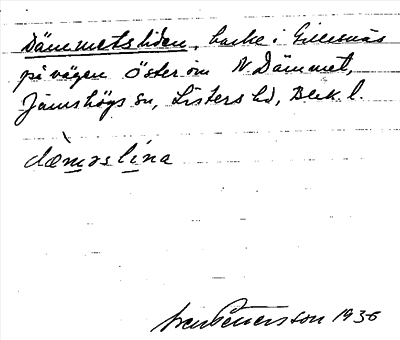 Dämmetsliden, backe i Gillesnäs
på vägen öster om N. Dämmet,
Jämshögs sn, Listers hd, Blek. l.
dæməslina
Sven Pettersson 1936